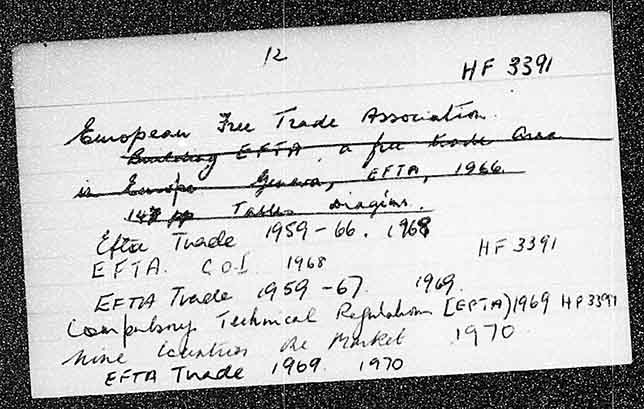 12
HF 3391
European Free Trade Association.
Building EFTA. a free trade area
in Europe Geneva, EFTA, 1966.
147 pp Tables Diagms.
Efta Trade 1959-66. 1968
EFTA. C O I. 1968 HF 3391
EFTA Trade 1959-67. 1969.
Compulsory Technical Regulations [EFTA] 1969 HF 3391
Nine Countries One Market 1970
EFTA Trade 1969. 1970